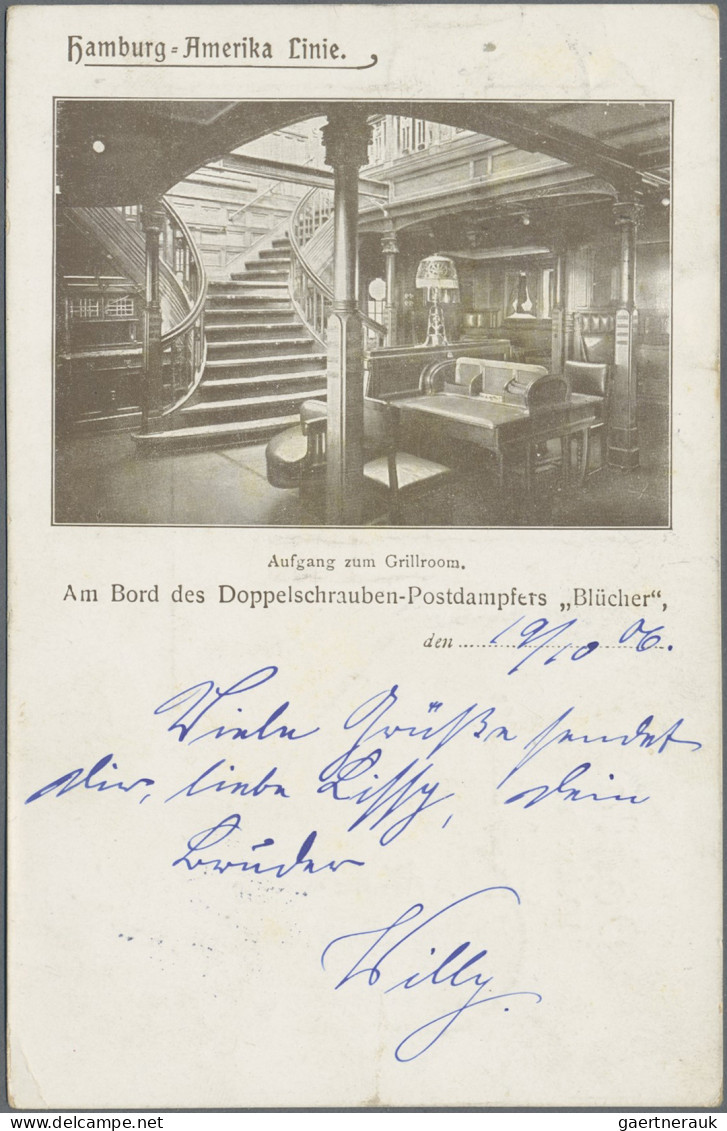 Hamburg=Amerika Linie.
Aufgang zum Grillroom.
Am Bord des Doppelschrauben-Postdampfers „Blücher“,
den 19/10 06.
Viele Grüße sendet
dir, liebe Lissy, dein
Bruder
Willy.
delcampe.net
gaertnerauk